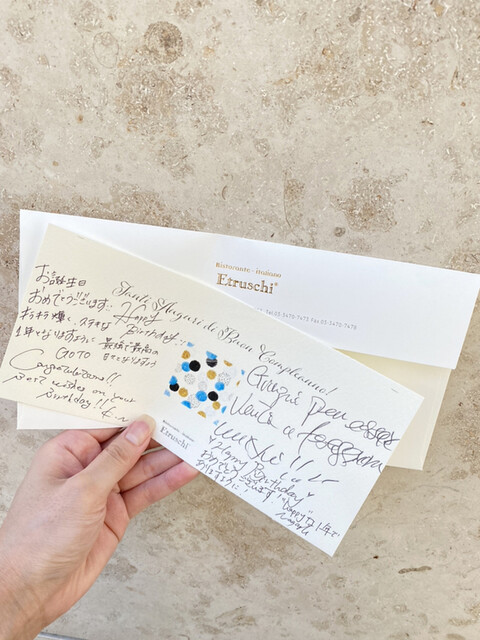 Ristorante · italiano
Etruschi
Tel.03-5470-7473 Fax.03-5470-7475
Tanti Auguri di Buon Compleanno!
お誕生日
おめでとうございます!!
キラキラ輝く、ステキな
1年となりますように
GOTO
Congratulations!!
Best wishes on your
Birthday!!
Happy
Birthday!!
最強で最高の
Grazie per esser
Venuti a festeggiare
Happy Birthday
おめでとうございます!
Happyな1年で
ありますように!
Ristorante · italiano
Etruschi